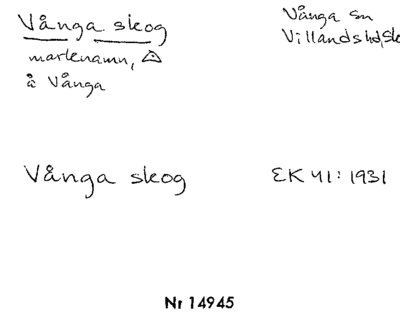 Vånga skog
marknamn, 
å Vånga
Vånga sn
Villands hd, Sk
Vånga skog
EK 41: 1931
Nr 14945